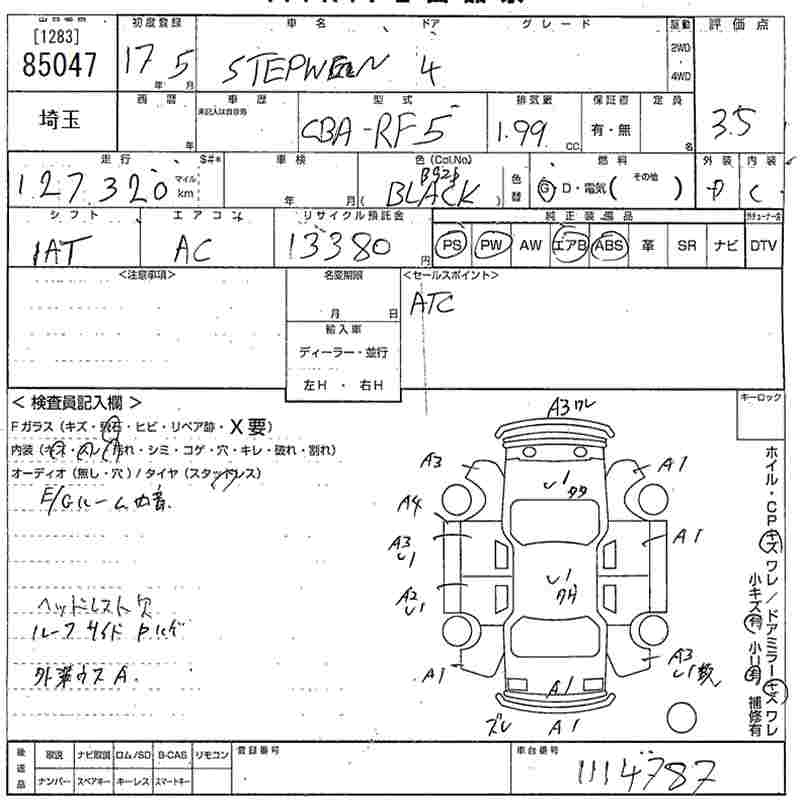 [1283]
85047
初度登録
17 年 5 月
車名 ドア グレード
STEPWGN 4
駆動
2WD
4WD
評価点
3.5
埼玉
西暦
年
車歴
未記入は自家用
型式
CBA-RF5
排気量
1.99 CC
保証書
有・無
定員
名
走行
127,320
マイル
km
$#*
車検
年 月
色(Col.No)
B92P
( BLACK )
色替
燃料
G・D・電気( その他 )
外装
D
内装
C
シフト
IAT
エアコン
AC
リサイクル預託金
13380 円
純正装備品
PS PW AW エアB ABS 革 SR ナビ DTV
<注意事項>
名変期限
月 日
輸入車
ディーラー・並行
左H・右H
<セールスポイント>
ATC
<検査員記入欄>
Fガラス(キズ・飛石・ヒビ・リペア跡・X要)
内装(キズ・スレ・汚れ・シミ・コゲ・穴・キレ・破れ・割れ)
オーディオ(無し・穴)/タイヤ(スタッドレス)
E/Gルーム内音
ヘッドレスト欠
ルーフサイドPハゲ
外装ウスA.
キーロック
ホイル・CPキズ ワレ/ドアミラーキズ ワレ
小キズ有 小U有 補修有
A3ワレ
A3
A1
U1
A4
A3
U1
A1
U1
A2
U1
A1
A3
U1数
A1
ズレ
A1
後送品
取説 ナビ取説 ロム/SD B-CAS リモコン
ナンバー スペアキー キーレス スマートキー
登録番号
車台番号
1114787